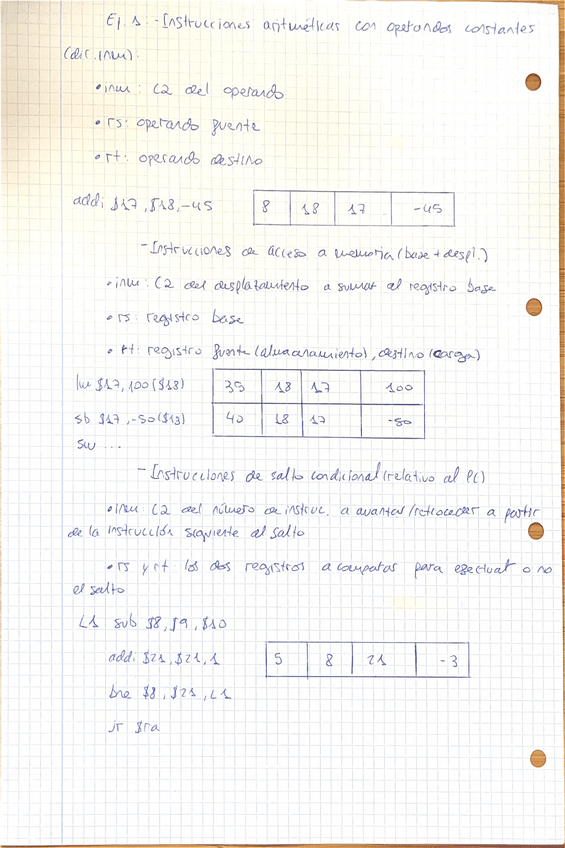 Ej. 1 - Instrucciones aritméticas con operandos constantes
(dir. inm).
• inm: C2 del operando
• rs: operando fuente
• rt: operando destino
addi $17, $18, -45 8 18 17 -45
- Instrucciones de acceso a memoria (base + despl.)
• inm: C2 del desplazamiento a sumar al registro base
• rs: registro base
• rt: registro fuente (almacenamiento), destino (carga)
lw $17, 100 ($18) 35 18 17 100
sb $17, -50($13) 40 18 17 -50
sw ...
- Instrucciones de salto condicional (relativo al PC)
• inm: C2 del número de instruc. a avanzar/retroceder a partir
de la instrucción siguiente al salto
• rs y rt: los dos registros a comparar para efectuar o no
el salto
L1 sub $8, $9, $10
addi $21, $21, 1 5 8 21 -3
bne $8, $21, L1
jr $ra